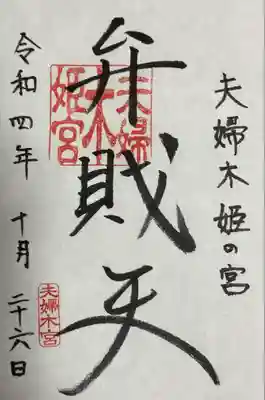 夫婦木姫の宮
弁戝天
夫婦
木
姫宮
令和四年 十月 二十六日
夫婦木宮